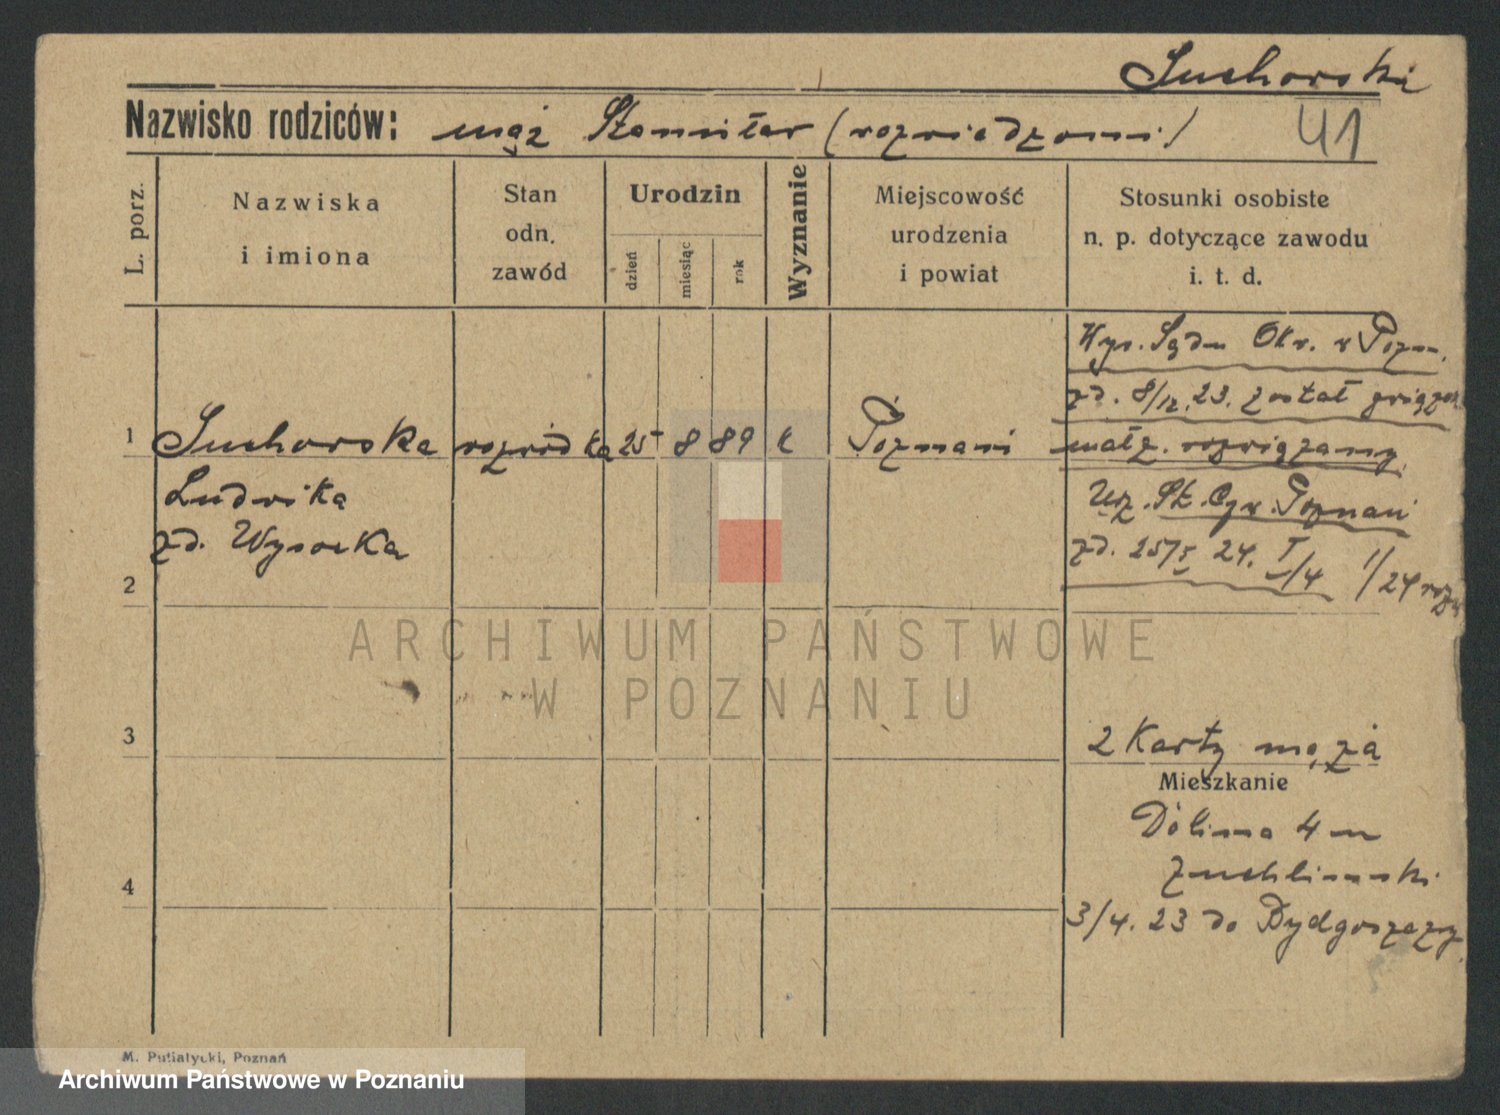 Suchorski
Nazwisko rodziców: mąż Stanisław (rozwiedzeni)
41
L. porz.
Nazwiska
i imiona
Stan
odn.
zawód
Urodzin
dzień
miesiąc
rok
Wyznanie
Miejscowość
urodzenia
i powiat
Stosunki osobiste
n. p. dotyczące zawodu
i. t. d.
Wyr. Sądu Okr. w Pozn.
zd. 8/12. 23. został związek
małż. rozwiązany
Urz. St. Cyw. Poznań
zd. 24. I/4 1/24
1 Suchorska rozwódka 25 8 89 k Poznań
Ludwika
zd. Wysocka
2
ARCHIWUM PAŃSTWOWE
W POZNANIU
3
2 Karty męża
Mieszkanie
Dolina 4 m
Zuchlinski
4
3/4. 23 do Bydgoszczy
M. Putiatycki, Poznań
Archiwum Państwowe w Poznaniu